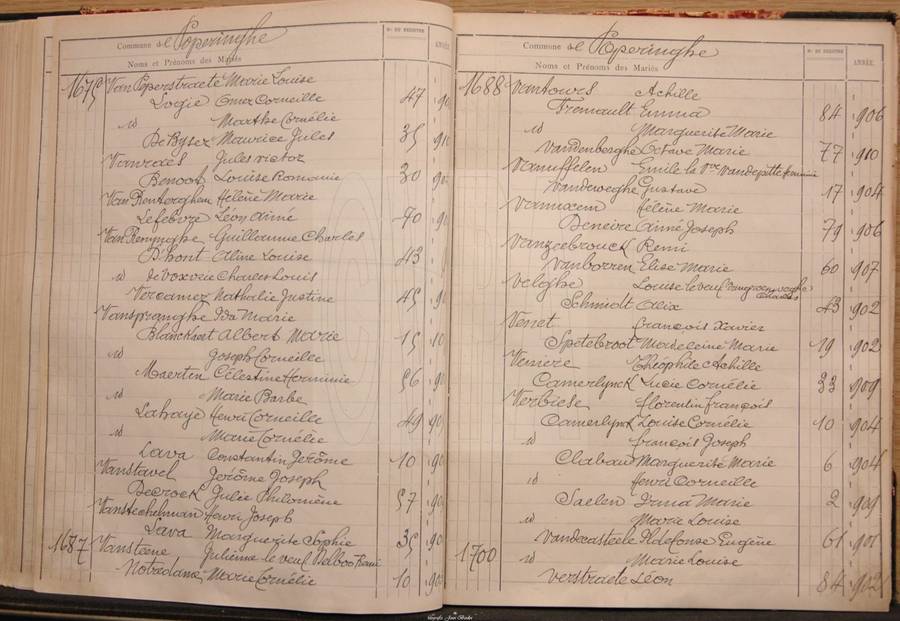 Commune de Poperinghe
N° DU REGISTRE
ANNÉE
Noms et Prénoms des Mariés
1675 Van Peperstraete Marie Louise
Logie Omer Corneille 47 90
id Marthe Cornélie
De Byser Maurice Jules 35 910
Vanraes Jules Victor
Benoot Louise Romanie 30 90
Van Renterghem Hélène Marie
Lefebvre Léon Aimé 70 90
Van Renynghe Guillaume Charles
D'hont Aline Louise 43
id Charles Louis
Vercamer Nathalie Justine 45 90
Vanspranghe Ida Marie
Blanckaert Albert Marie 15 10
id Joseph Corneille
Maerten Célestine Herminie 56 90
id Marie Barbe
Lahaye Henri Corneille 49 90
id Marie Cornélie
Lava Constantin Jérôme 10 90
Vanstavel Jérôme Joseph
Decrock Julie Philomène 57 90
Vanstechelman Henri Joseph
Lava Marguerite Sophie 35 90
1687 Vansteene Julienne le veuf Delboo
Notredame Marie Cornélie 10 90
Commune de Poperinghe
N° DU REGISTRE
ANNÉE
Noms et Prénoms des Mariés
1688 Vantours Achille
Fremault Emma 84 906
id Marguerite Marie
Vandenberghe Octave Marie 77 910
Vanuffelen Emile la Vve Vandeputte
Vandeweghe Gustave 17 904
Vanuxem Hélène Marie
Deneire Aimé Joseph 79 906
Vanzeebrouck Remi
Vanborren Elise Marie 60 907
Velghe Louise le veuf
Charles
Schmidt Alix 43 902
Verret François Xavier
Spetebroot Madeleine Marie 19 902
Verriere Théophile Achille
Camerlynck Lucie Cornélie 33 909
Verbiese Florentin François
Camerlynck Louise Cornélie 10 904
id François Joseph
Clabau Marguerite Marie 6 904
id Henri Corneille
Saelen Irma Marie 2 909
id Marie Louise
Vandecasteele Ildefonse Eugène 61 901
1700 id Marie Louise
Verstraete Léon 84 902